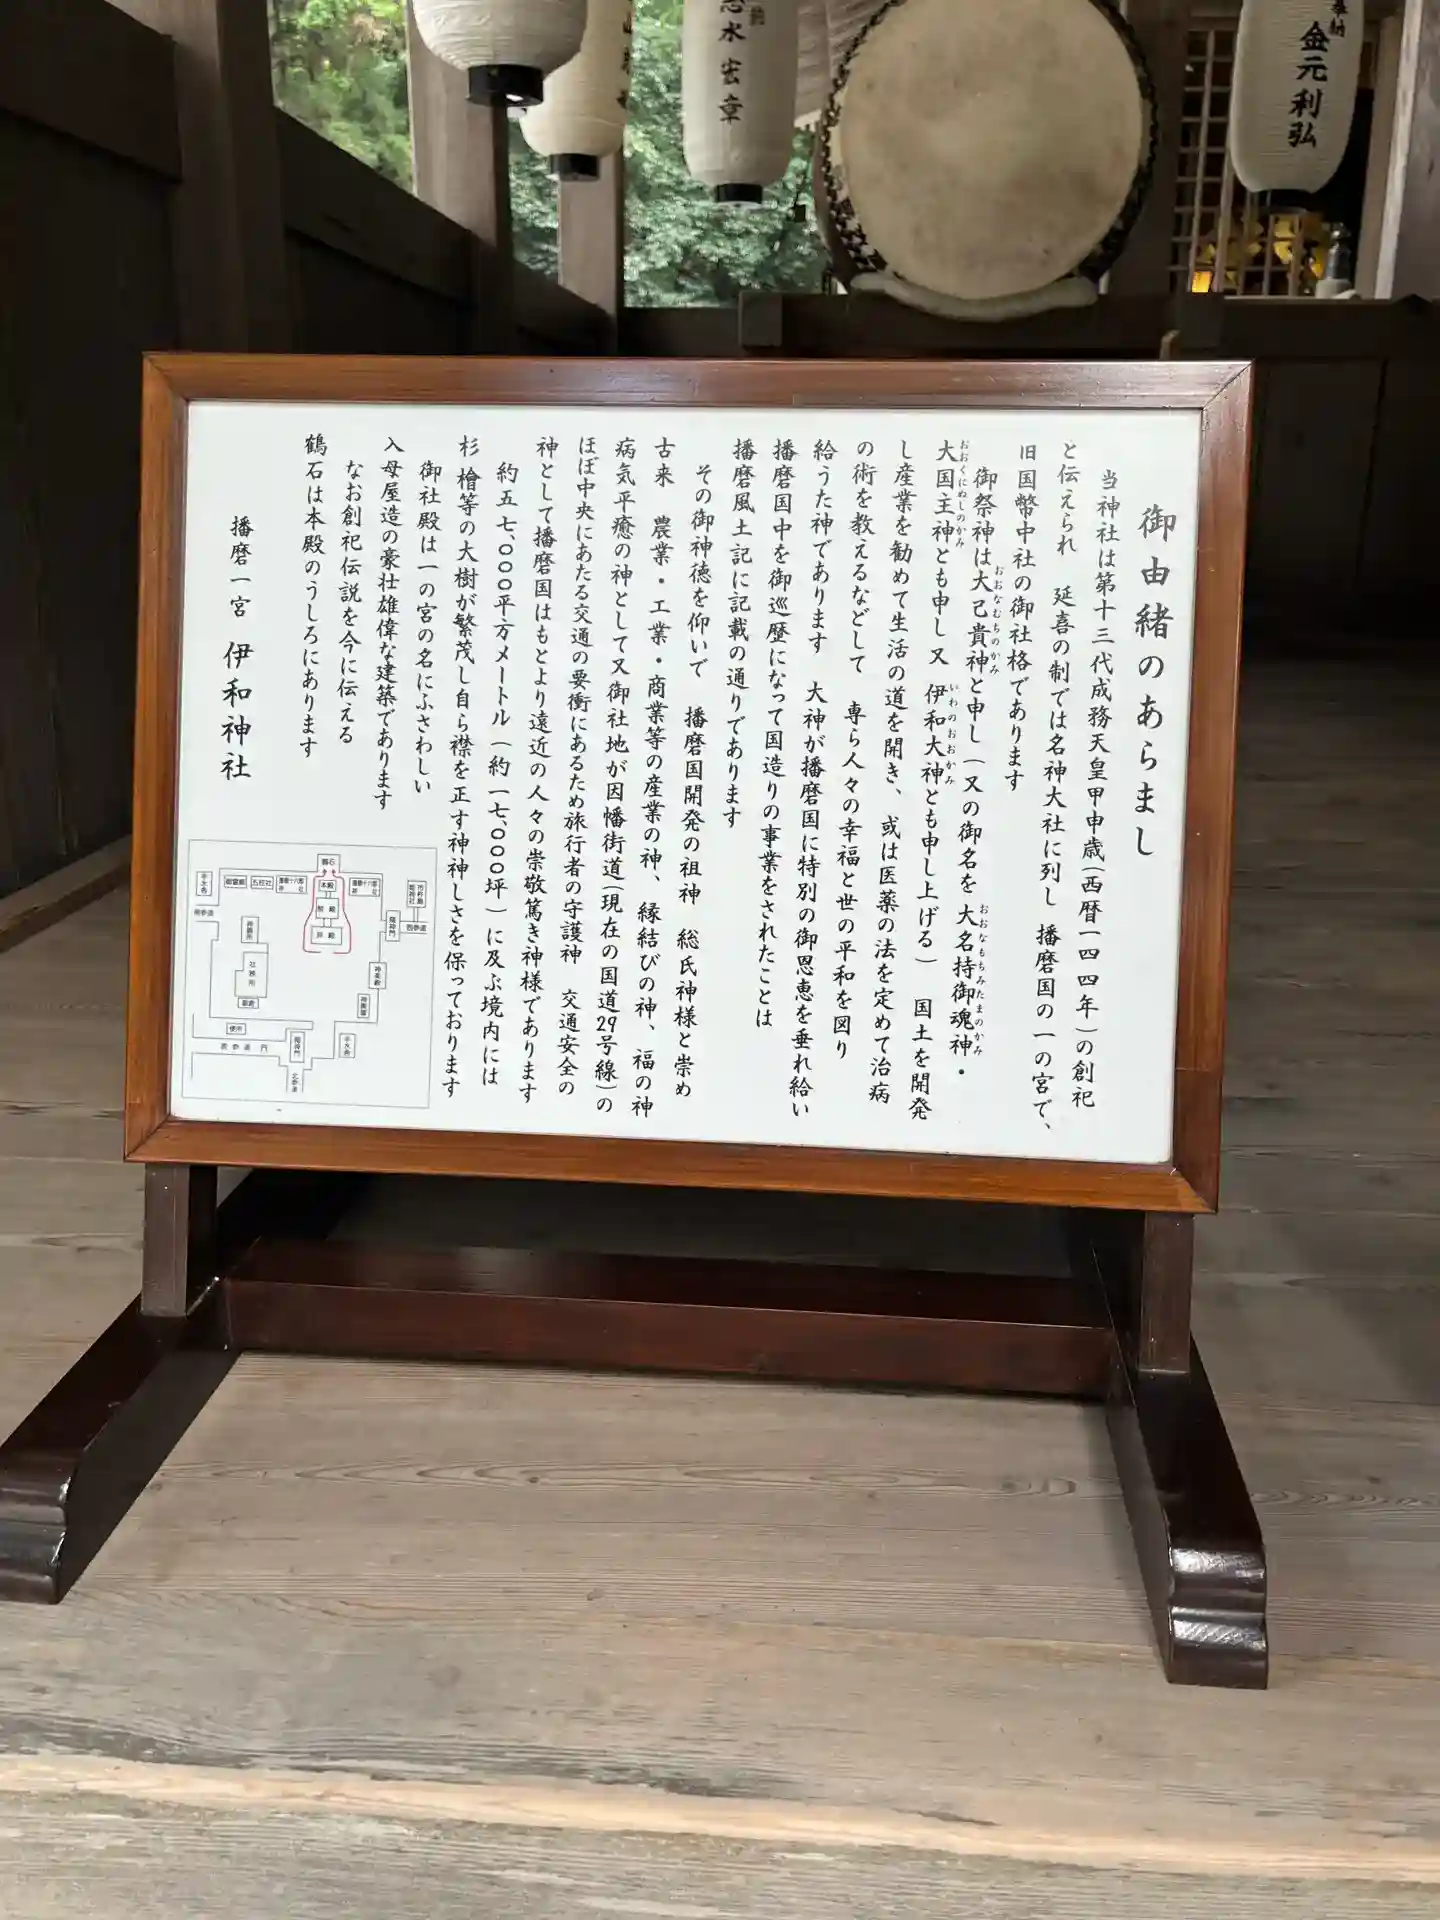 御由緒のあらまし
当神社は第十三代成務天皇甲申歳(西暦一四四年)の創祀
と伝えられ 延喜の制では名神大社に列し 播磨国の一の宮で、
旧国幣中社の御社格であります
御祭神は大己貴神と申し(又の御名を 大名持御魂神・
おおなむちのかみ
おおなもちみたまのかみ
大国主神とも申し又 伊和大神とも申し上げる) 国土を開発
おおくにぬしのかみ
いわのおおかみ
し産業を勧めて生活の道を開き、或は医薬の法を定めて治病
の術を教えるなどして 専ら人々の幸福と世の平和を図り
給うた神であります 大神が播磨国に特別の御恩恵を垂れ給い
播磨国中を御巡歴になって国造りの事業をされたことは
播磨風土記に記載の通りであります
その御神徳を仰いで 播磨国開発の祖神 総氏神様と崇め
古来 農業・工業・商業等の産業の神、縁結びの神、福の神
病気平癒の神として又御社地が因幡街道(現在の国道29号線)の
ほぼ中央にあたる交通の要衝にあるため旅行者の守護神 交通安全の
神として播磨国はもとより遠近の人々の崇敬篤き神様であります
約五七、〇〇〇平方メートル(約一七、〇〇〇坪)に及ぶ境内には
杉 檜等の大樹が繁茂し自ら襟を正す神神しさを保っております
御社殿は一の宮の名にふさわしい
入母屋造の豪壮雄偉な建築であります
なお創祀伝説を今に伝える
鶴石は本殿のうしろにあります
播磨一宮 伊和神社
鶴石
本殿
幣殿
拝殿
五柱社
手水舎
西参道
社務所
便所
表参道
神楽殿
手水舎
北参道
水宏章
奉納
金元利弘